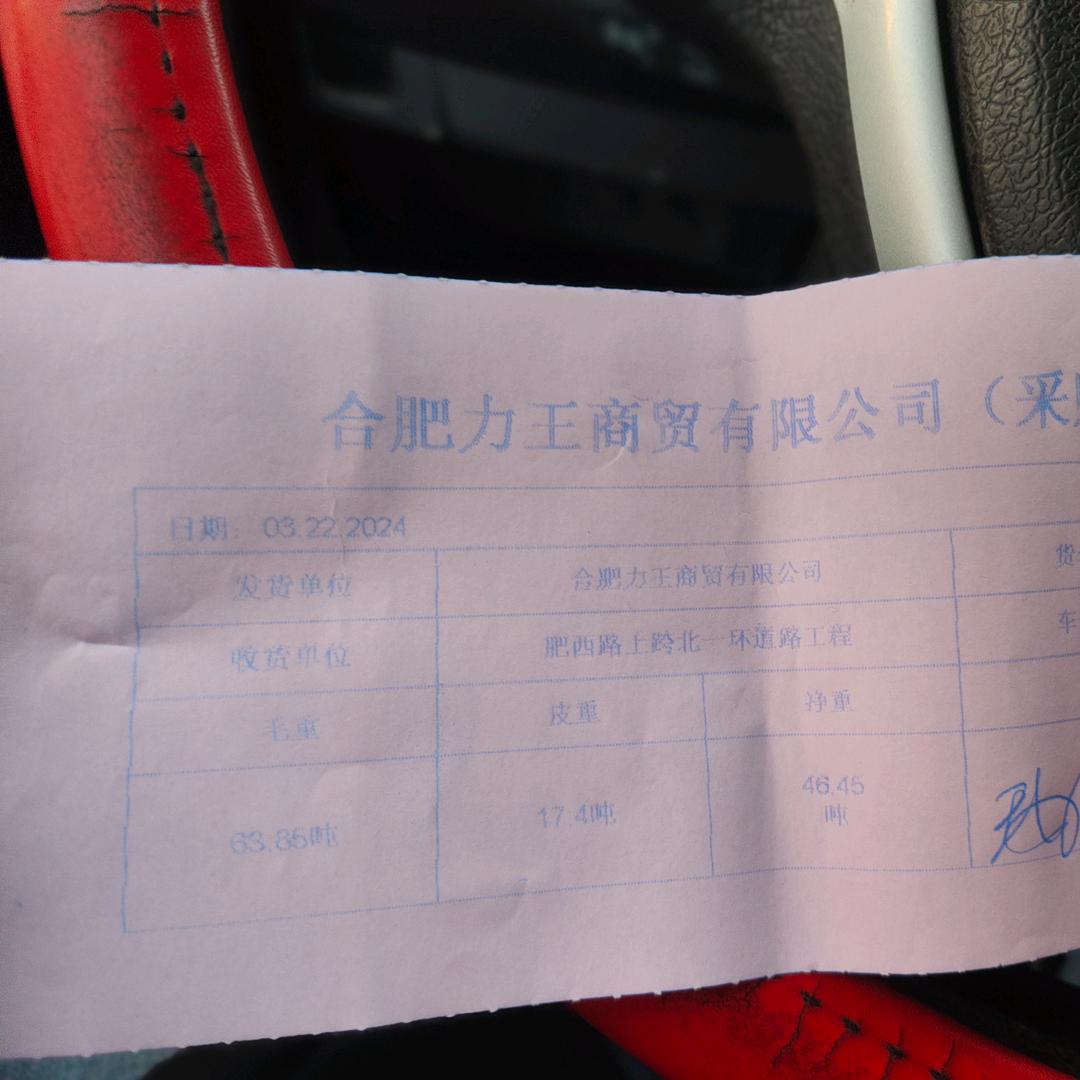 合肥力王商贸有限公司（采
日期：03.22.2024
发货单位 合肥力王商贸有限公司 货
收货单位 肥西路上跨北一环道路工程 车
毛重 皮重 净重
63.85吨 17.4吨 46.45
吨